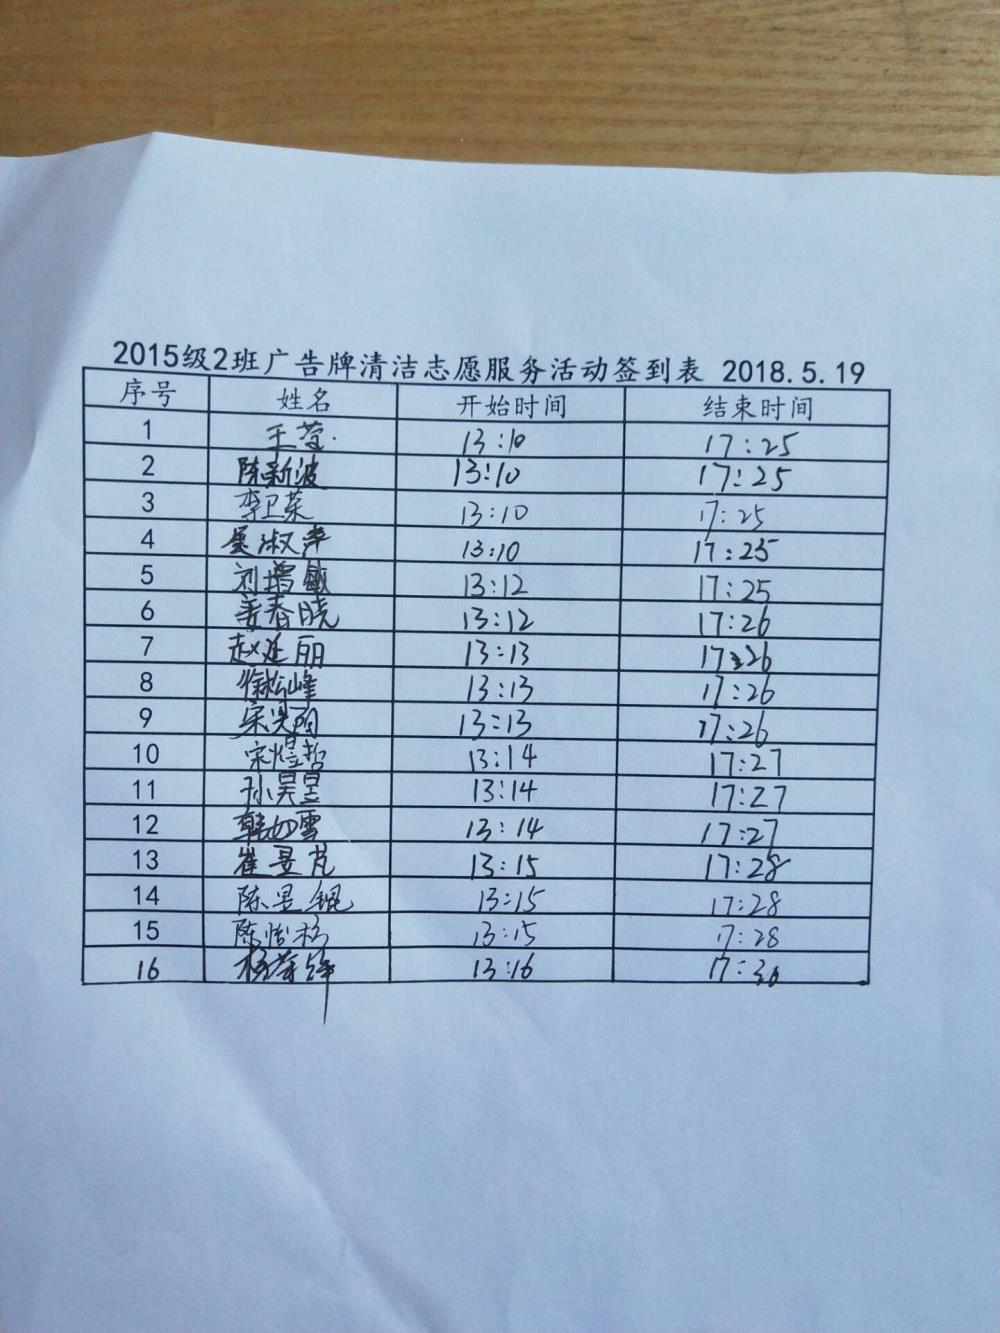 2015级2班广告牌清洁志愿服务活动签到表 2018.5.19
序号 姓名 开始时间 结束时间
1 王莹 13:10 17:25
2 陈新波 13:10 17:25
3 李卫荣 13:10 17:25
4 吴淑萍 13:10 17:25
5 刘增敏 13:12 17:25
6 姜春晓 13:12 17:26
7 赵延丽 13:13 17:26
8 徐松峰 13:13 17:26
9 宋 13:13 17:26
10 宋煜哲 13:14 17:27
11 孙昊昱 13:14 17:27
12 韩如雪 13:14 17:27
13 崔昱芃 13:15 17:28
14 陈昱锟 13:15 17:28
15 陈怡 13:15 17:28
16 杨 13:16 17:30